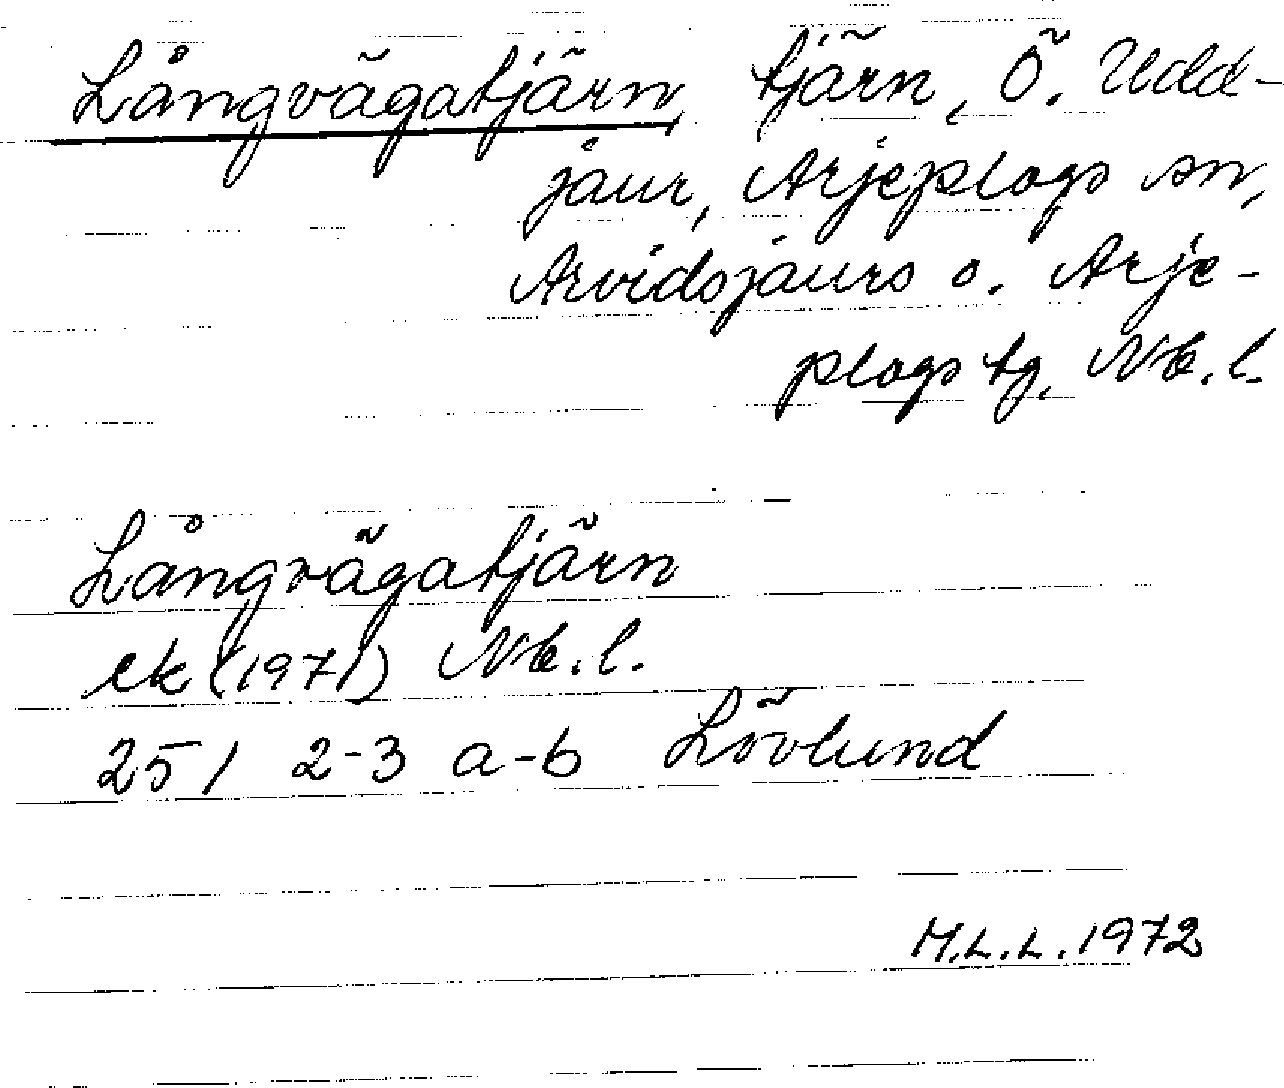 Långvägatjärn, tjärn, Ö. Udd-
jaur, Arjeplogs sn,
Arvidsjaurs o. Arje-
plogs tg, Nb.l.
Långvägatjärn
ek (1971) Nb.l.
251 2-3 a-b Lövlund
M.L.L. 1972